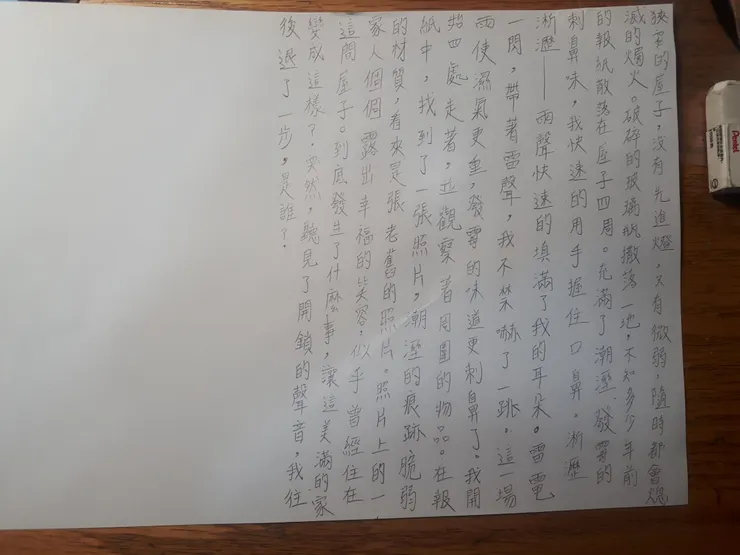 狹窄的屋子，沒有先進燈，只有微弱，隨時都會熄
滅的燭火。破碎的玻璃瓶撒落一地，不知多少年前
的報紙散落在屋子四周。充滿了潮溼、發霉的
刺鼻味，我快速的用手握住口鼻。淅瀝
淅瀝——雨聲快速的填滿了我的耳朵。雷電
一閃，帶著雷聲，我不禁嚇了一跳。這一場
雨使濕氣更重，發霉的味道更刺鼻了。我開
始四處走著，並觀察著周圍的物品。在報
紙中，找到了一張照片，潮溼的痕跡脆弱
的材質，看來是張老舊的照片。照片上的一
家人個個露出幸福的笑容，似乎曾經住在
這間屋子。到底發生了什麼事，讓這美滿的家
變成這樣？突然，聽見了開鎖的聲音，我往
後退了一步。是誰？
Pentel